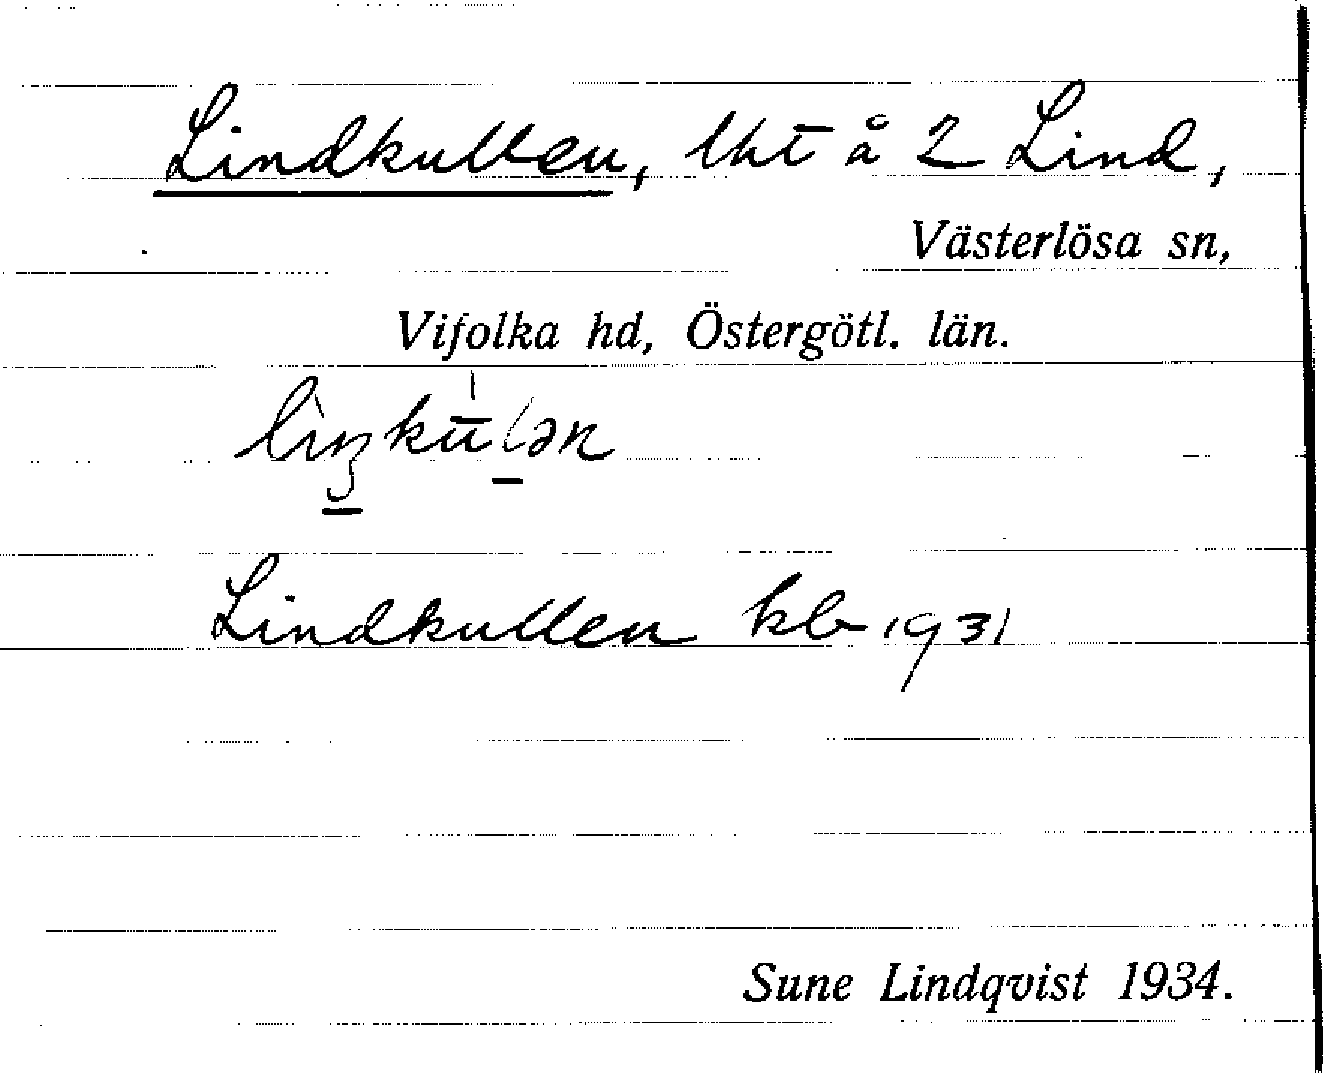 Lindkullen, lht å 2 Lind,
Västerlösa sn,
Vifolka hd, Östergötl. län.
Lindkullen kb 1931
Sune Lindqvist 1934.